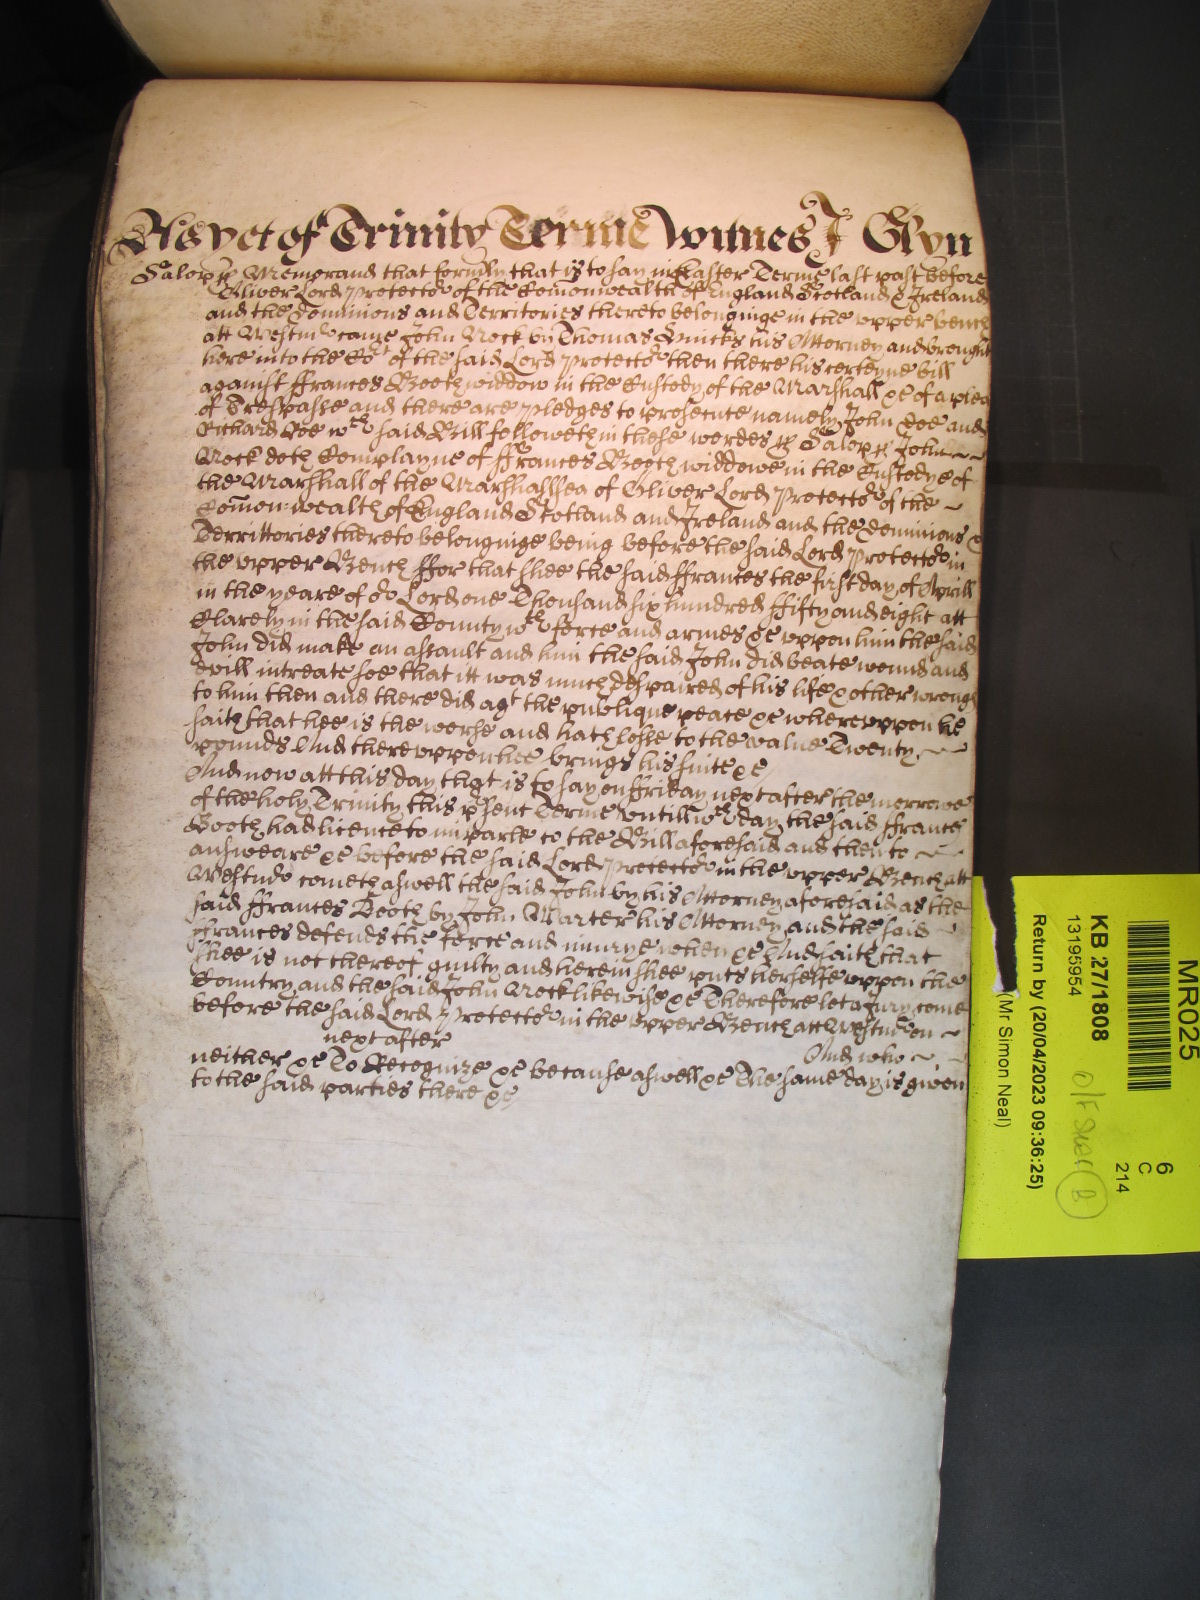 As yet of Trinity Terme Witnes J Glyn
Salop ss Memorand that formly that is to say in Easter Terme last past before
Oliver Lord Protector of the Comonwealth of England Scotland & Ireland
and the Dominions and Territories thereto belonginge in the upper bench
att Westmr came John Rock by Thomas his Attorney and brought
here into the Cort of the said Lord Protector then there his certeyne bill
against ffrances Booth widdow in the Custody of the Marshall &c of a plea
of Trespasse and there are pledges to prosecute namely John Doe and
Richard Roe wch said Bill followeth in these wordes ss Salop ss John
Rock doth Complayne of ffrances Booth widdowe in the Custodye of
the Marshall of the Marshallsea of Oliver Lord Protector of the
Comon-wealth of England Scotland and Ireland and the Dominions &
Territtories thereto belonginge being before the said Lord Protector in
the upper Bench ffor that shee the said ffrances the first day of Aprill
in the yeare of or Lord one Thousand six hundred ffifty and eight att
Clarely in the said County wth force and armes &c uppon him the said
John did make an assault and him the said John did beate wound and
evill intreate soe that itt was much despaired of his life & other wrongs
to him then and there did agt the publique peace &c whereuppon he
saith that hee is the worse and hath losse to the value Twenty
pounds And thereuppon hee brings his suite &c
And now att this day that is to say on ffriday next after the morrowe
of the holy Trinity this psent Terme untill wch day the said ffrances
Booth had licence to imparle to the Bill aforesaid and then to
answeare &c before the said Lord Protector in the upper Bench att
Westmr cometh aswell the said John by his Attorney aforesaid as the
said ffrances Booth by John Marter his Attorney and the said
ffrances defends the force and iniurye when &c And saith that
shee is not thereof guilty and herein shee puts herselfe uppon the
Country and the said John Rock likewise &c Therefore let a Jury come
before the said Lord Protector in the upper Bench att Westmr on
next after And who
neither &c To Recognize &c because aswell &c The same day is given
to the said parties there &c
MR025
6
C
214
KB 27/1808
13195954
Return by (20/04/2023 09:36:25)
(Mr Simon Neal)